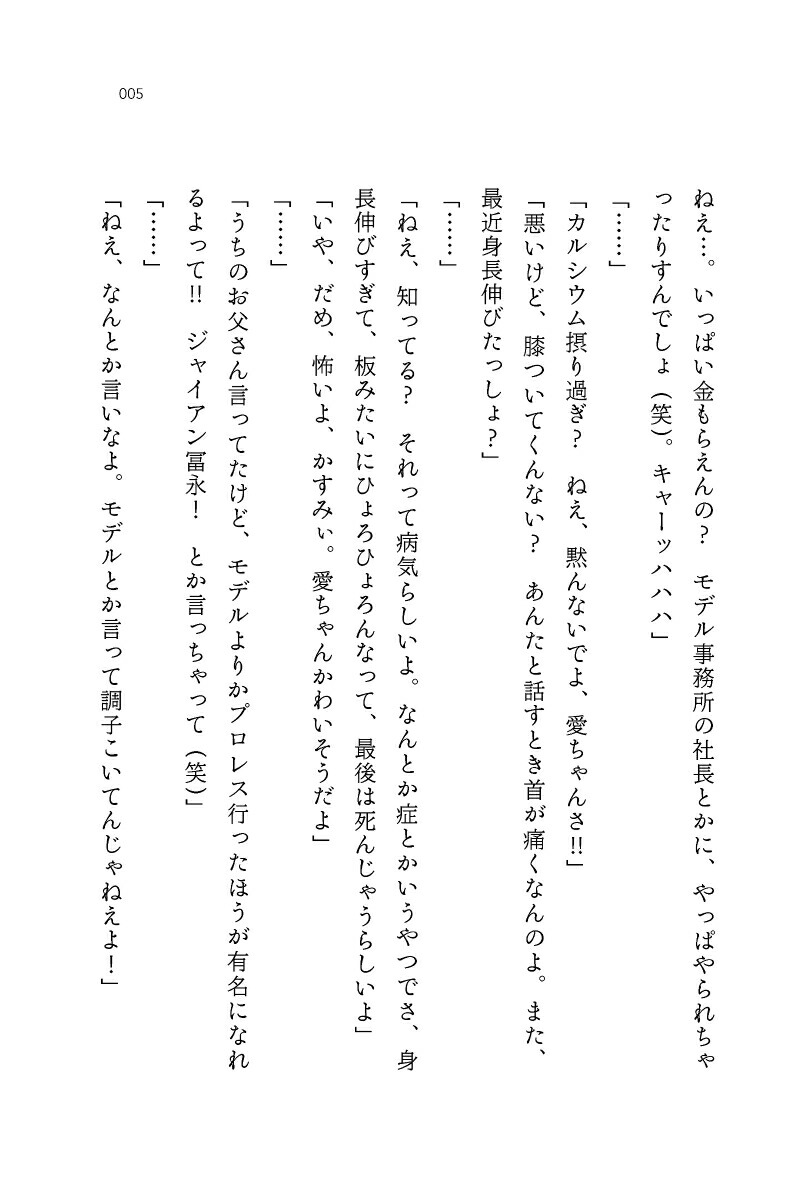 005
ねえ…。いっぱい金もらえんの？　モデル事務所の社長とかに、やっぱやられちゃ
ったりすんでしょ（笑）。キャーッハハハ」
「……」
「カルシウム摂り過ぎ？　ねえ、黙んないでよ、愛ちゃんさ!!」
「悪いけど、膝ついてくんない？　あんたと話すとき首が痛くなんのよ。また、
最近身長伸びたっしょ？」
「……」
「ねえ、知ってる？　それって病気らしいよ。なんとか症とかいうやつでさ、身
長伸びすぎて、板みたいにひょろひょろんなって、最後は死んじゃうらしいよ」
「いや、だめ、怖いよ、かすみぃ。愛ちゃんかわいそうだよ」
「……」
「うちのお父さん言ってたけど、モデルよりかプロレス行ったほうが有名になれ
るよって!!　ジャイアン冨永！　とか言っちゃって（笑）」
「……」
「ねえ、なんとか言いなよ。モデルとか言って調子こいてんじゃねえよ！」